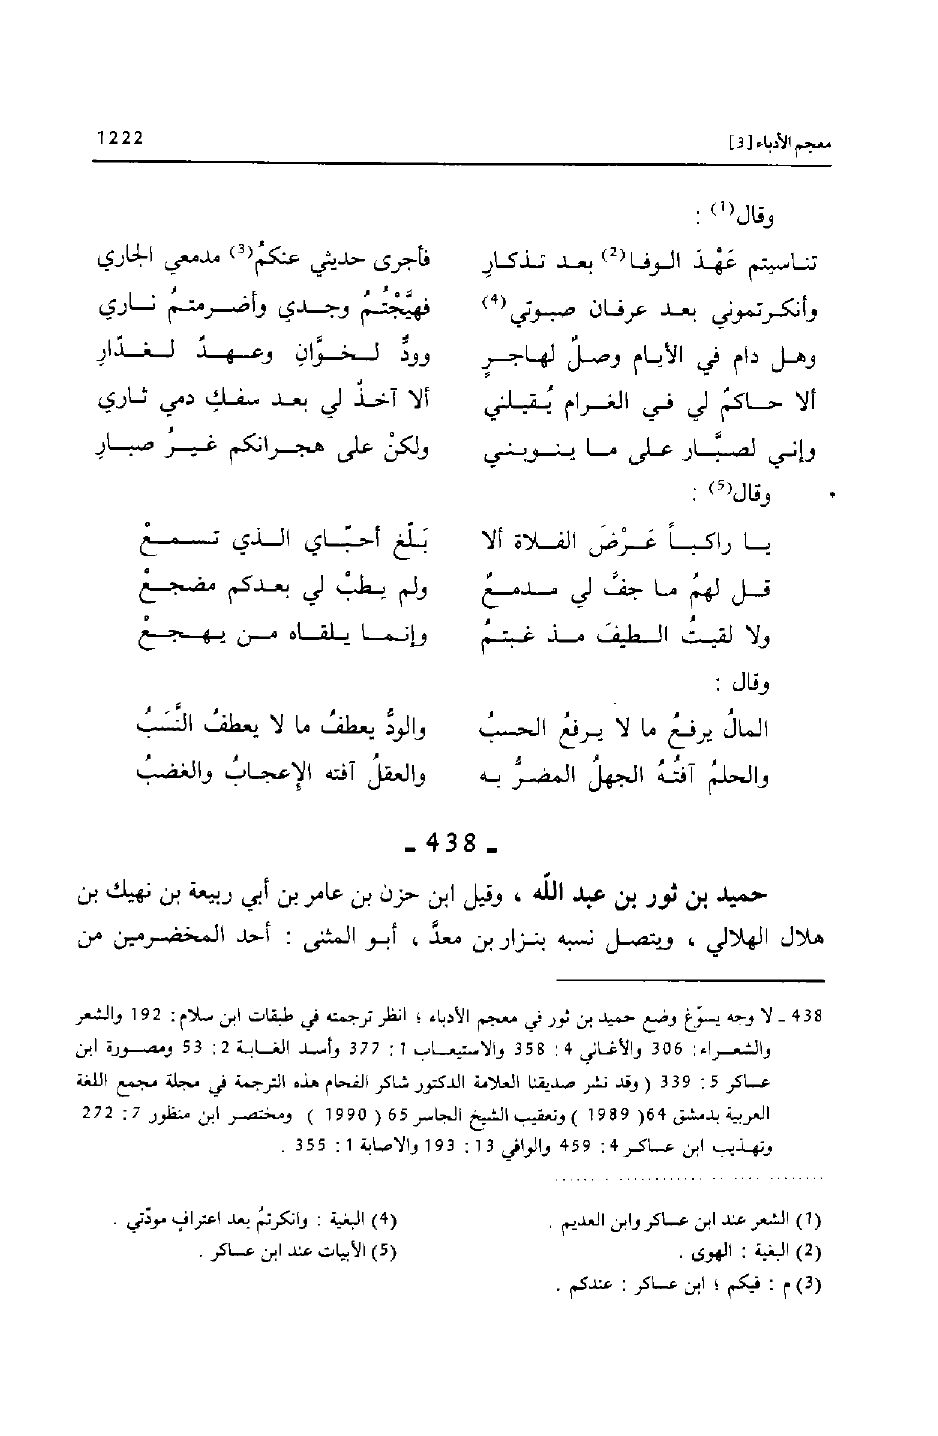 معجم الأدباء [3] 1222
وقال(1) :
تناسيتم عَهْدَ الوفا(2) بعد تذكارِ فأجرى حديثي عنكمُ(3) مدمعي الجاري
وأنكرتموني بعد عرفان صبوتي(4) فهيَّجْتُمُ وجدي وأضرمتمُ ناري
وهل دام في الأيام وصلٌ لهاجرٍ وودٌّ لخوَّانٍ وعهدٌ لغدّارِ
ألا حاكمٌ لي في الغرام يُقيلني ألا آخذٌ لي بعد سفكِ دمي ثاري
وإني لصبَّار على ما ينوبني ولكنْ على هجرانكم غيرُ صبارِ
وقال(5) :
يا راكباً عَرْضَ الفلاة ألا بَلّغ أحبّاي الذي تسمعْ
قل لهمُ ما جفَّ لي مدمعٌ ولم يطبْ لي بعدكم مضجعْ
ولا لقيتُ الطيفَ مذ غبتمُ وإنما يلقاه من يهجعْ
وقال :
المالُ يرفعُ ما لا يرفعُ الحسبُ والودُّ يعطفُ ما لا يعطفُ النَّسَبُ
والحلمُ آفتُهُ الجهلُ المضرُّ به والعقلُ آفته الإعجابُ والغضبُ
- 438 -
حميد بن ثور بن عبد الله ، وقيل ابن حزن بن عامر بن أبي ربيعة بن نهيك بن
هلال الهلالي ، ويتصل نسبه بنزار بن معدّ ، أبو المثنى : أحد المخضرمين من
438 - لا وجه يسوّغ وضع حميد بن ثور في معجم الأدباء ؛ انظر ترجمته في طبقات ابن سلام: 192 والشعر
والشعراء: 306 والأغاني 4 : 358 والاستيعاب 1 : 377 وأسد الغابة 2 : 53 ومصورة ابن
عساكر 5 : 339 ( وقد نشر صديقنا العلامة الدكتور شاكر الفحام هذه الترجمة في مجلة مجمع اللغة
العربية بدمشق 64( 1989 ) وتعقيب الشيخ الجاسر 65 ( 1990 ) ومختصر ابن منظور 7 : 272
وتهذيب ابن عساكر 4 : 459 والوافي 13 : 193 والاصابة 1 : 355 .
(1) الشعر عند ابن عساكر وابن العديم .
(2) البغية : الهوى .
(3) م : فيكم ؛ ابن عساكر : عندكم .
(4) البغية : وانكرتمُ بعد اعتراف مودّتي .
(5) الأبيات عند ابن عساكر .